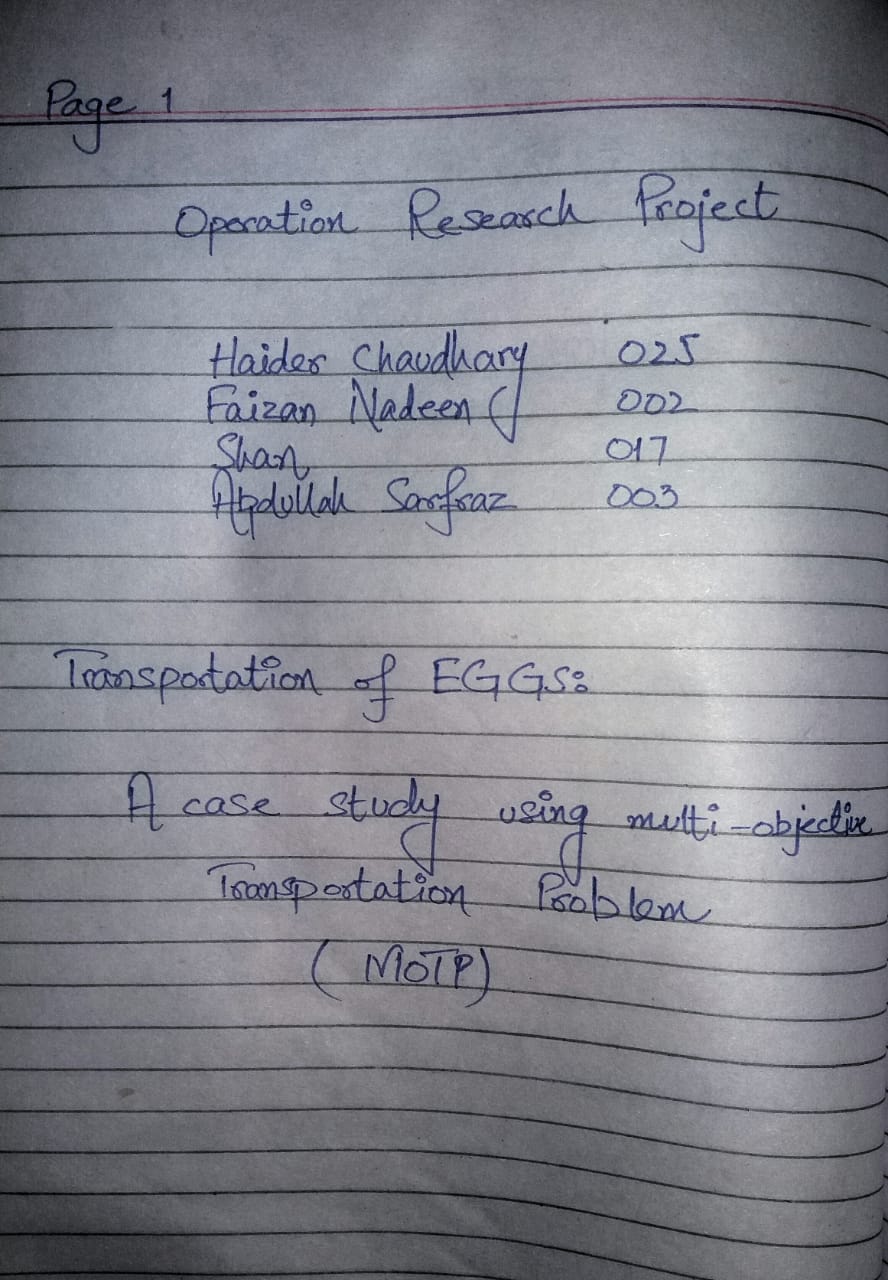 Page 1
Operation Research Project
Haider Chaudhary 025
Faizan Nadeen 002
Shan 017
Abdullah Sarfraz 003
Transportation of EGGS:
A case study using multi-objective
Transportation Problem
(MOTP)